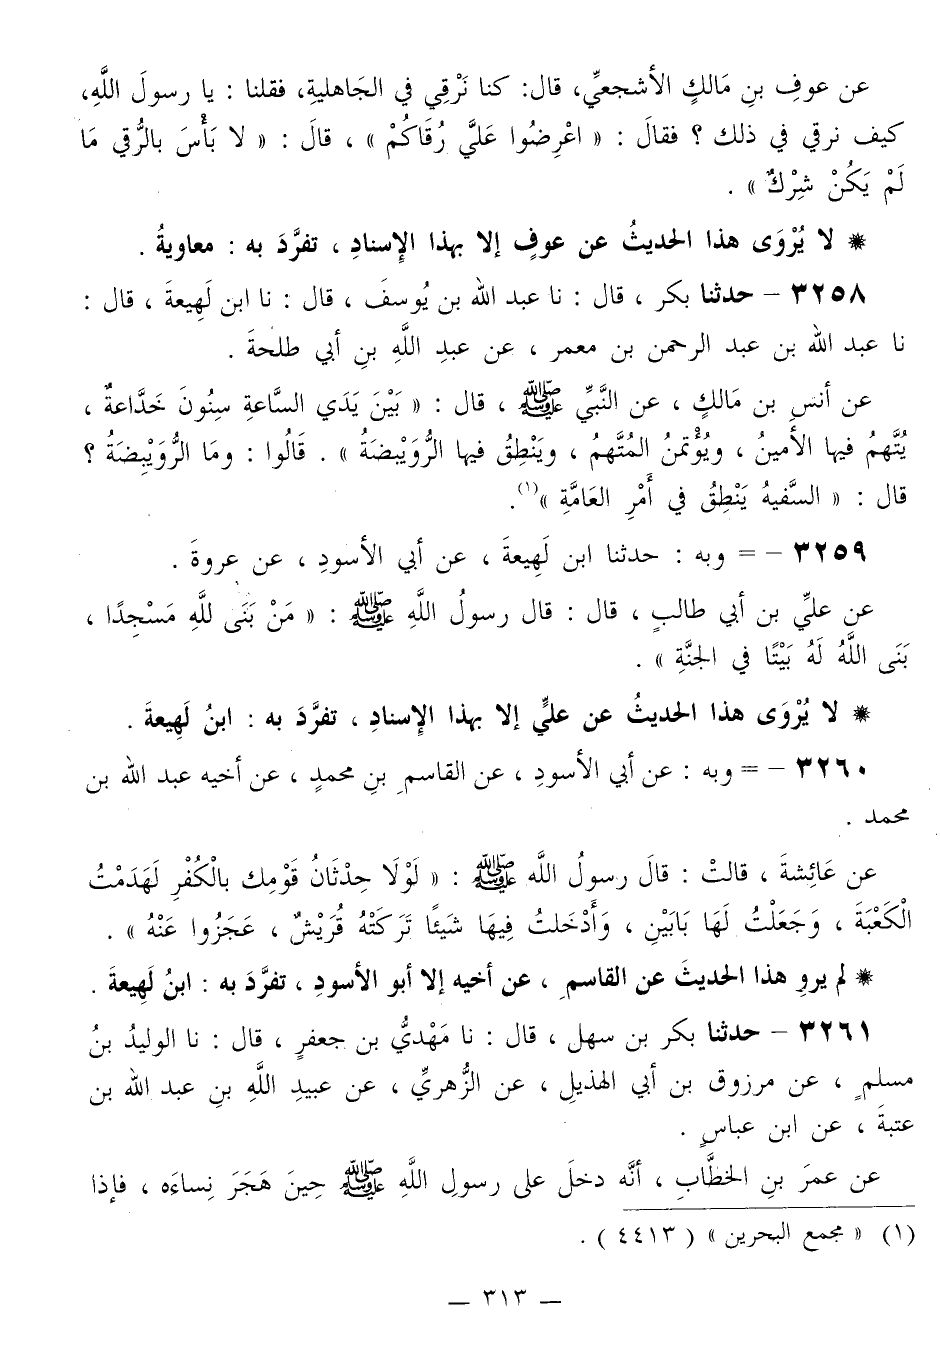 عن عوفِ بنِ مَالكٍ الأشجعيِّ، قال: كنا نَرْقِي في الجَاهليةِ، فقلنا : يا رسولَ اللَّهِ،
كيف نرقي في ذلك ؟ فقالَ : « اعْرِضُوا عَلَيَّ رُقَاكُمْ » ، قالَ : « لا بَأْسَ بالرُّقي مَا
لَمْ يَكُنْ شِرْكٌ » .
* لا يُرْوَى هذا الحديثُ عن عوفٍ إلا بهذا الإِسنادِ ، تفرَّدَ به : معاويةُ .
٣٢٥٨ – حدثنا بكر ، قال : نا عبد الله بن يُوسفَ ، قال : نا ابن لَهِيعةَ ، قال :
نا عبد الله بن عبد الرحمن بن معمر ، عن عبدِ اللَّهِ بنِ أبي طلحةَ .
عن أنسِ بن مَالكٍ ، عن النَّبيِّ ﷺ ، قال : « بَيْنَ يَدَي السَّاعةِ سِنُونَ خَدَّاعةٌ ،
يُتَّهمُ فيها الأَمينُ ، ويُؤْتمنُ المُتَّهمُ ، ويَنْطِقُ فيها الرُّوَيْبضَةُ » . قَالُوا : ومَا الرُّوَيْبِضَةُ ؟
قال : « السَّفيهُ يَنْطِقُ في أَمْرِ العَامَّةِ »(١).
٣٢٥٩ – = وبه : حدثنا ابن لَهِيعةَ ، عن أبي الأسودِ ، عن عروةَ .
عن عليِّ بن أبي طالبٍ ، قال : قال رسولُ اللَّهِ ﷺ : « مَنْ بَنَى للَّهِ مَسْجِدًا ،
بَنَى اللَّهُ لَهُ بَيْتًا في الجنَّةِ » .
* لا يُرْوَى هذا الحديثُ عن عليٍّ إلا بهذا الإِسنادِ ، تفرَّدَ به : ابنُ لَهِيعةَ .
٣٢٦٠ – = وبه : عن أبي الأسودِ ، عن القاسمِ بنِ محمدٍ ، عن أخيه عبد الله بن
محمد .
عن عَائِشةَ ، قالتْ : قالَ رسولُ اللَّه ﷺ : « لَوْلَا حِدْثَانُ قَوْمِك بالْكُفْرِ لَهَدَمْتُ
الْكَعْبَةَ ، وَجَعَلْتُ لَهَا بَابَيْنِ ، وَأَدْخَلتُ فِيهَا شَيئًا تَرَكَتْهُ قُرَيْشٌ ، عَجَزُوا عَنْهُ » .
* لم يروِ هذا الحديثَ عن القاسمِ ، عن أخيه إلا أبو الأسودِ ، تفرَّدَ به : ابنُ لَهِيعةَ .
٣٢٦١ – حدثنا بكر بن سهل ، قال : نا مَهْديُّ بن جعفرٍ ، قال : نا الوليدُ بنُ
مسلمٍ ، عن مرزوق بن أبي الهذيلِ ، عن الزُّهريِّ ، عن عبيدِ اللَّهِ بنِ عبد الله بن
عتبةَ ، عن ابن عباسٍ .
عن عمرَ بنِ الخطَّابِ ، أنَّه دخلَ على رسولِ اللَّهِ ﷺ حِينَ هَجَرَ نِساءَه ، فإذا
(١) « مجمع البحرين » ( ٤٤١٣ ) .
— ٣١٣ —